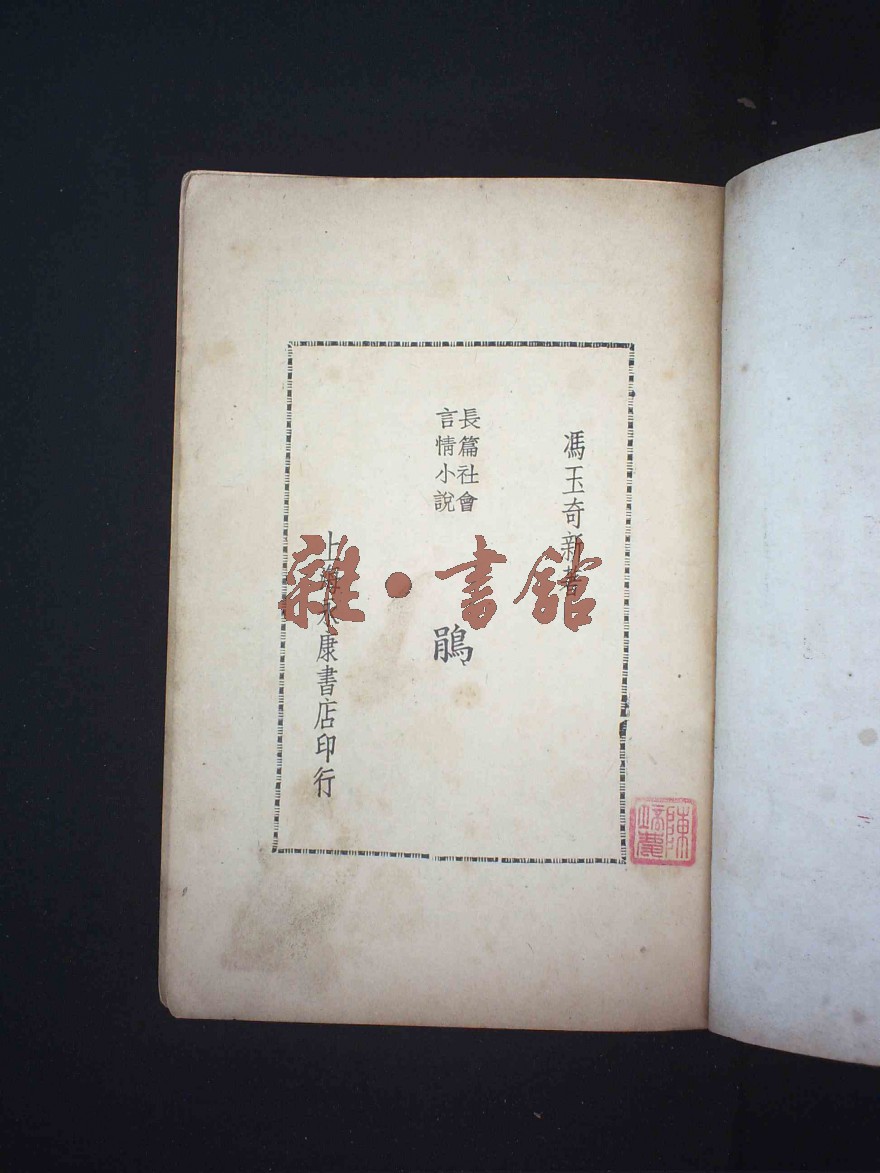 馮玉奇新著
長篇社會
言情小說
鵑
上海永康書店印行
雜·書館
陳